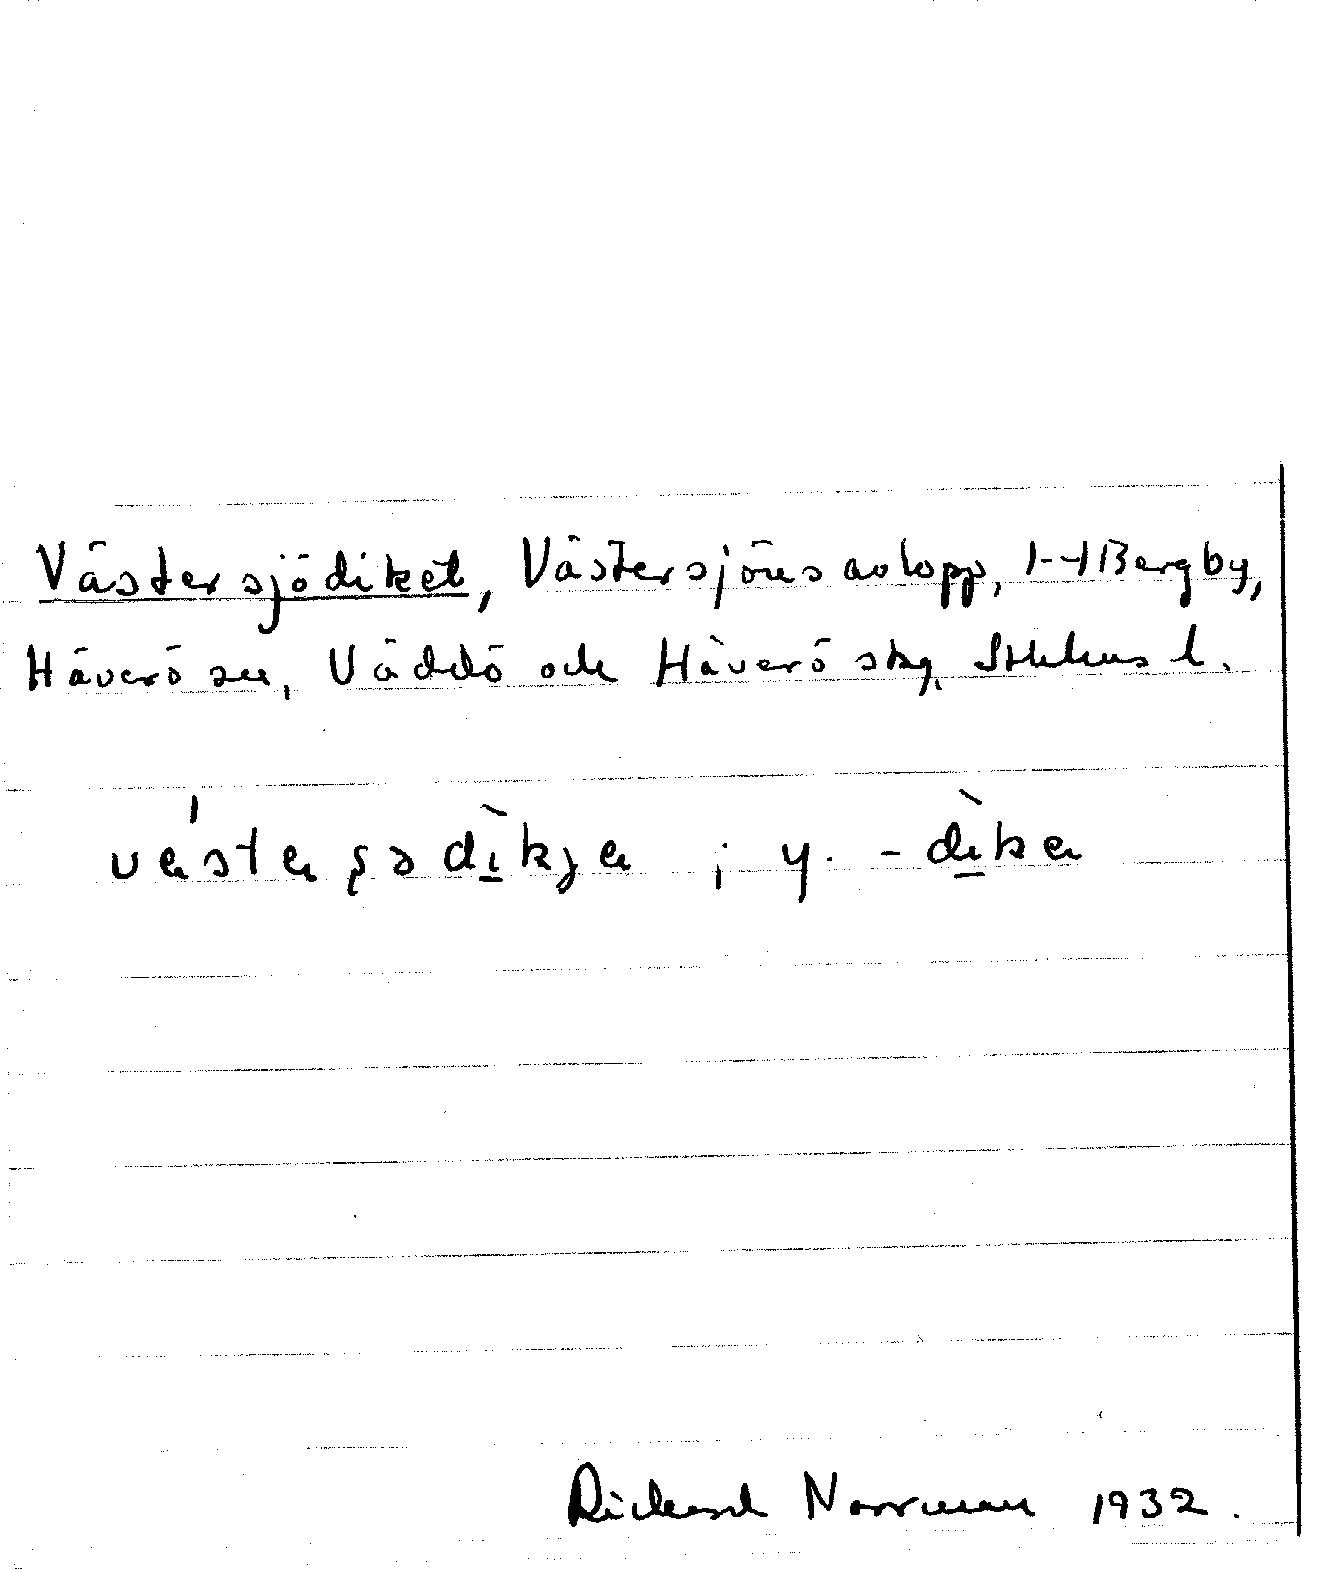 Västersjödiket, Västersjöns avlopp, 1-4 Bergby,
Häverö sn, Väddö och Häverö skg, Sthlms l.
; y.
Rickard Norrman 1932.